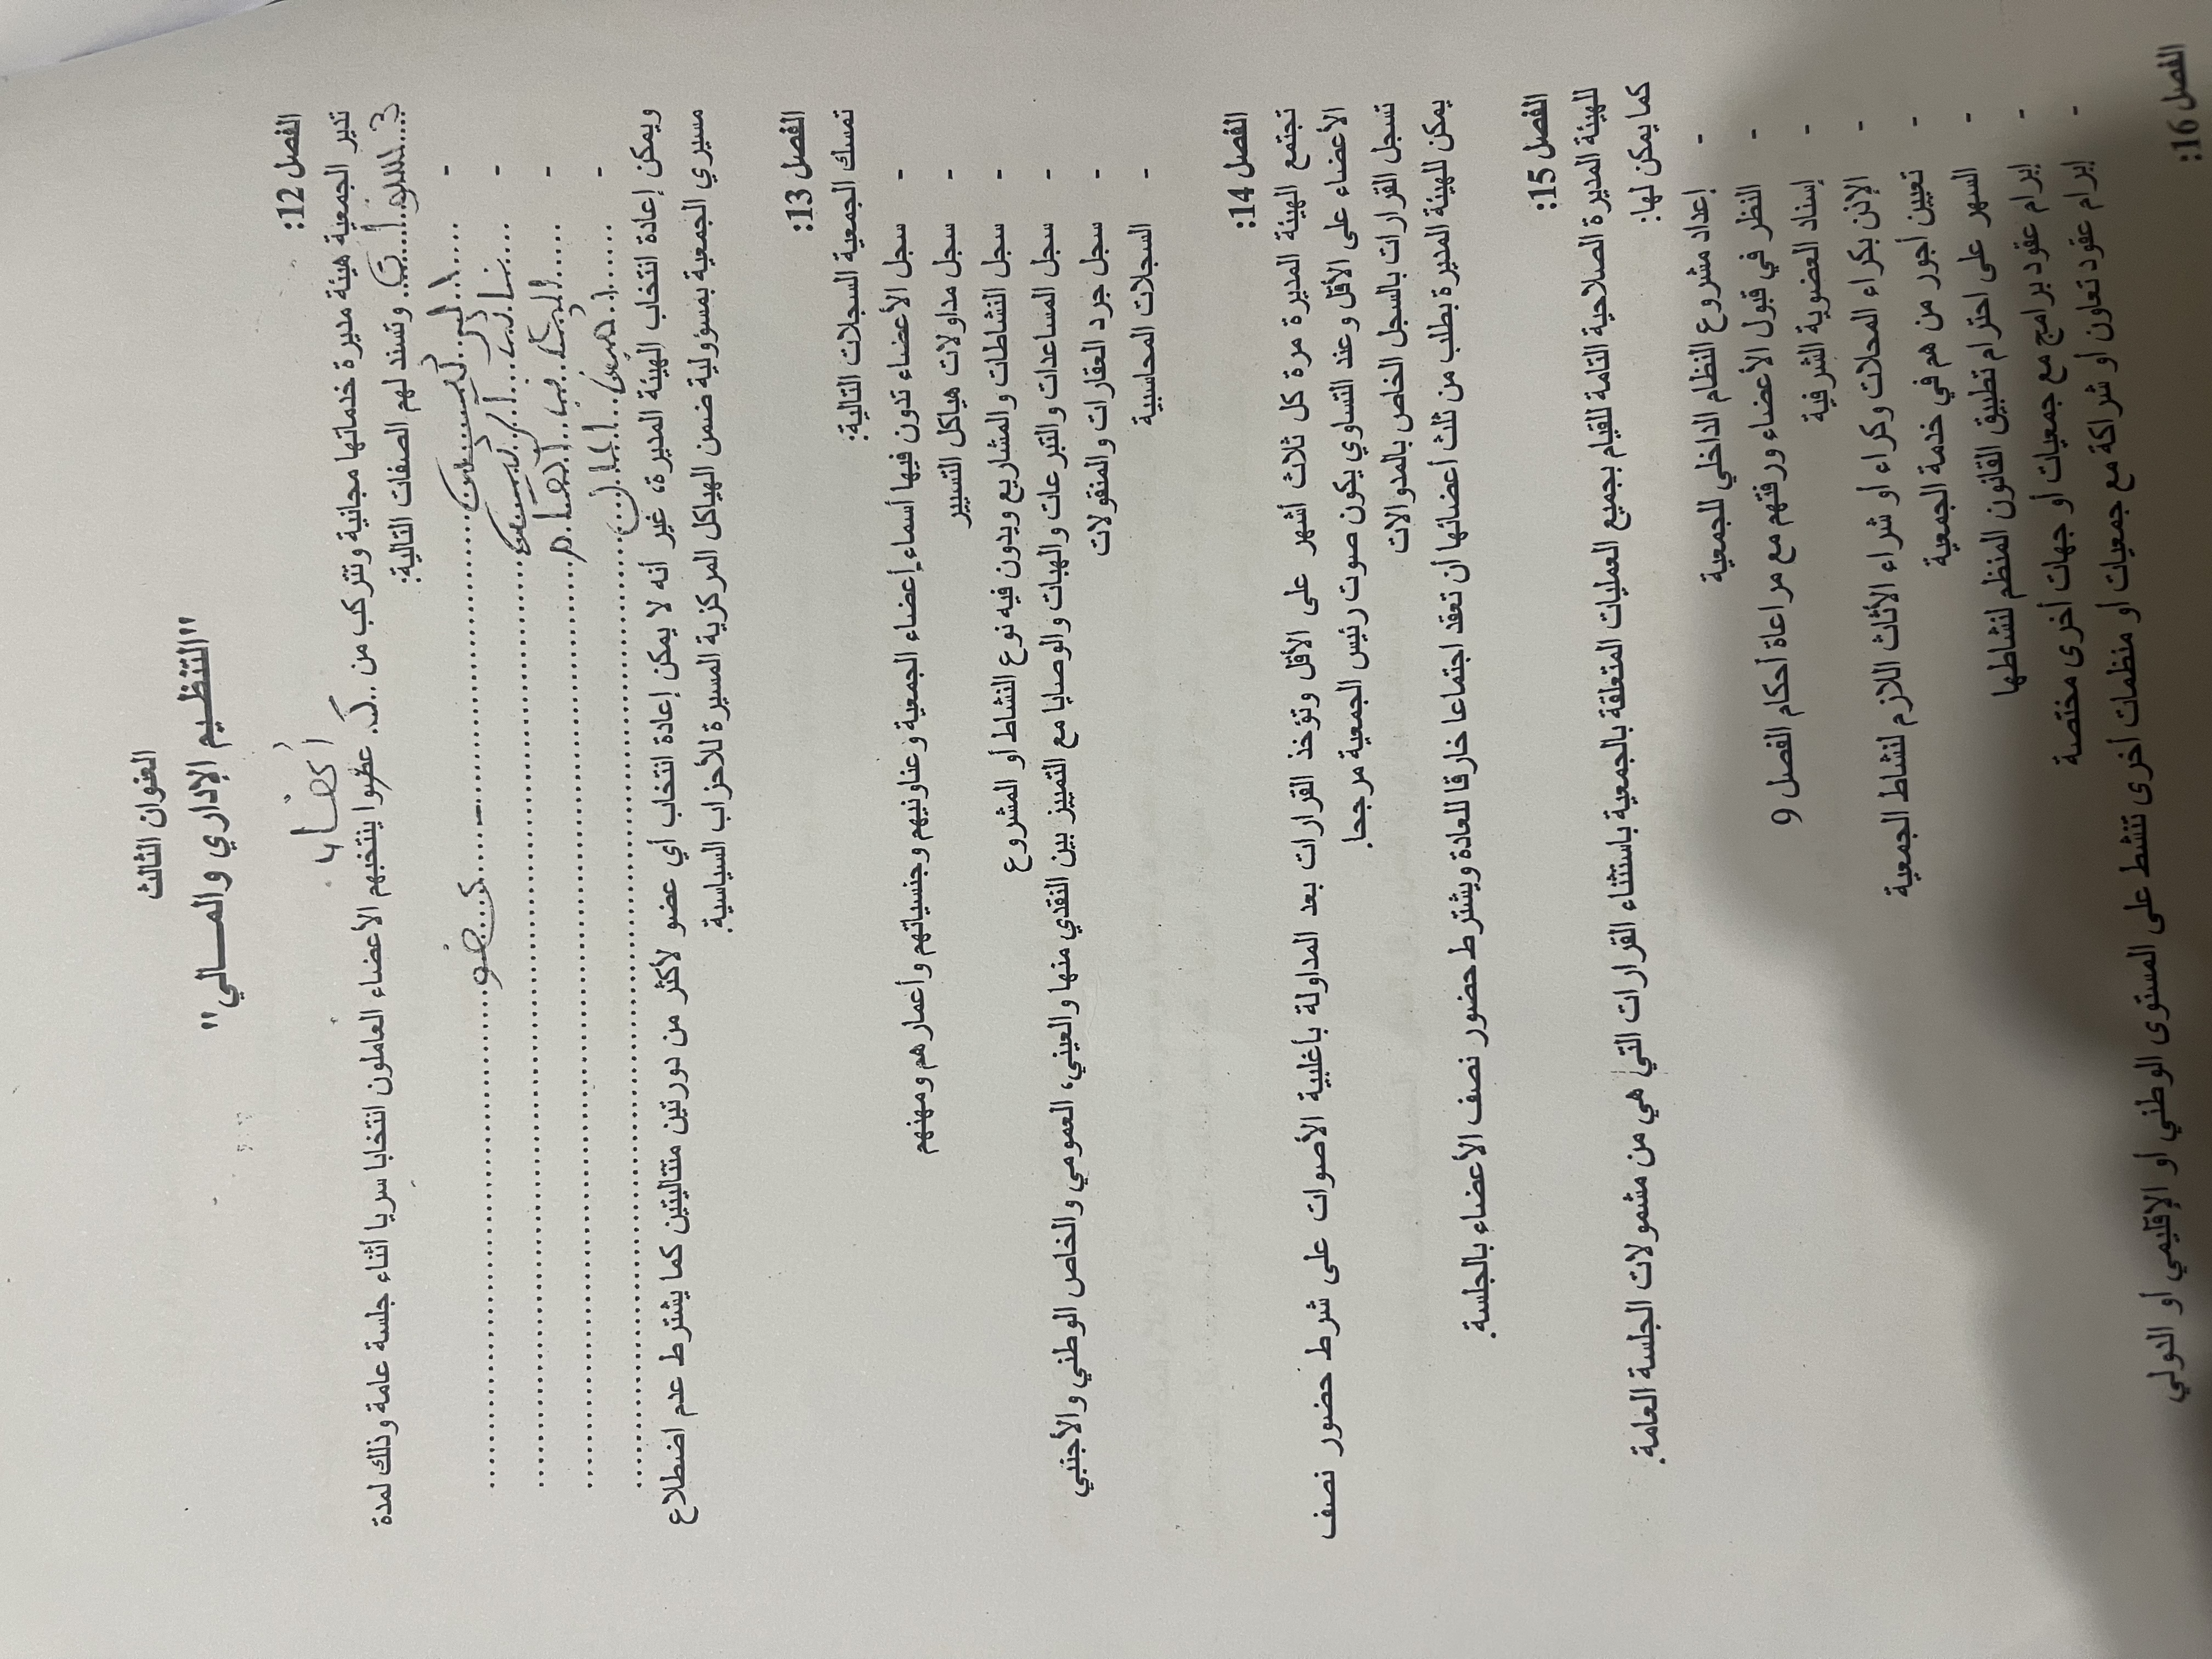 العنوان الثالث
"التنظيم الإداري والمالي"
الفصل 12:
تدير الجمعية هيئة مديرة خدماتها مجانية وتتركب من عضوا ينتخبهم الأعضاء العاملون انتخابا سريا أثناء جلسة عامة وذلك لمدة
3 سنوات وتسند لهم الصفات التالية:
أعضاء
- الرئيس عضو
- نائب الرئيس
- الكاتب العام
- أمين المال
ويمكن إعادة انتخاب الهيئة المديرة، غير أنه لا يمكن إعادة انتخاب أي عضو لأكثر من دورتين متتاليتين كما يشترط عدم اضطلاع
مسيري الجمعية بمسؤولية ضمن الهياكل المركزية المسيرة للأحزاب السياسية.
الفصل 13:
تمسك الجمعية السجلات التالية:
- سجل الأعضاء تدون فيها أسماء أعضاء الجمعية وعناوينهم وجنسياتهم وأعمارهم ومهنهم
- سجل مداولات هياكل التسيير
- سجل النشاطات والمشاريع ويدون فيه نوع النشاط أو المشروع
- سجل المساعدات والتبرعات والهبات والوصايا مع التمييز بين النقدي منها والعيني، العمومي والخاص الوطني والأجنبي
- سجل جرد العقارات والمنقولات
- السجلات المحاسبية
الفصل 14:
تجتمع الهيئة المديرة مرة كل ثلاث أشهر على الأقل وتؤخذ القرارات بعد المداولة بأغلبية الأصوات على شرط حضور نصف
الأعضاء على الأقل وعند التساوي يكون صوت رئيس الجمعية مرجحا.
تسجل القرارات بالسجل الخاص بالمدوالات
يمكن للهيئة المديرة بطلب من ثلث أعضائها أن تعقد اجتماعا خارقا للعادة ويشترط حضور نصف الأعضاء بالجلسة.
الفصل 15:
للهيئة المديرة الصلاحية التامة للقيام بجميع العمليات المتعلقة بالجمعية باستثناء القرارات التي هي من مشمولات الجلسة العامة.
كما يمكن لها:
- إعداد مشروع النظام الداخلي للجمعية
- النظر في قبول الأعضاء ورفتهم مع مراعاة أحكام الفصل 9
- إسناد العضوية الشرفية
- الإذن بكراء المحلات وكراء أو شراء الأثاث اللازم لنشاط الجمعية
- تعيين أجور من هم في خدمة الجمعية
- السهر على احترام تطبيق القانون المنظم لنشاطها
- إبرام عقود برامج مع جمعيات أو جهات أخرى مختصة
- إبرام عقود تعاون أو شراكة مع جمعيات أو منظمات أخرى تنشط على المستوى الوطني أو الإقليمي أو الدولي
الفصل 16: